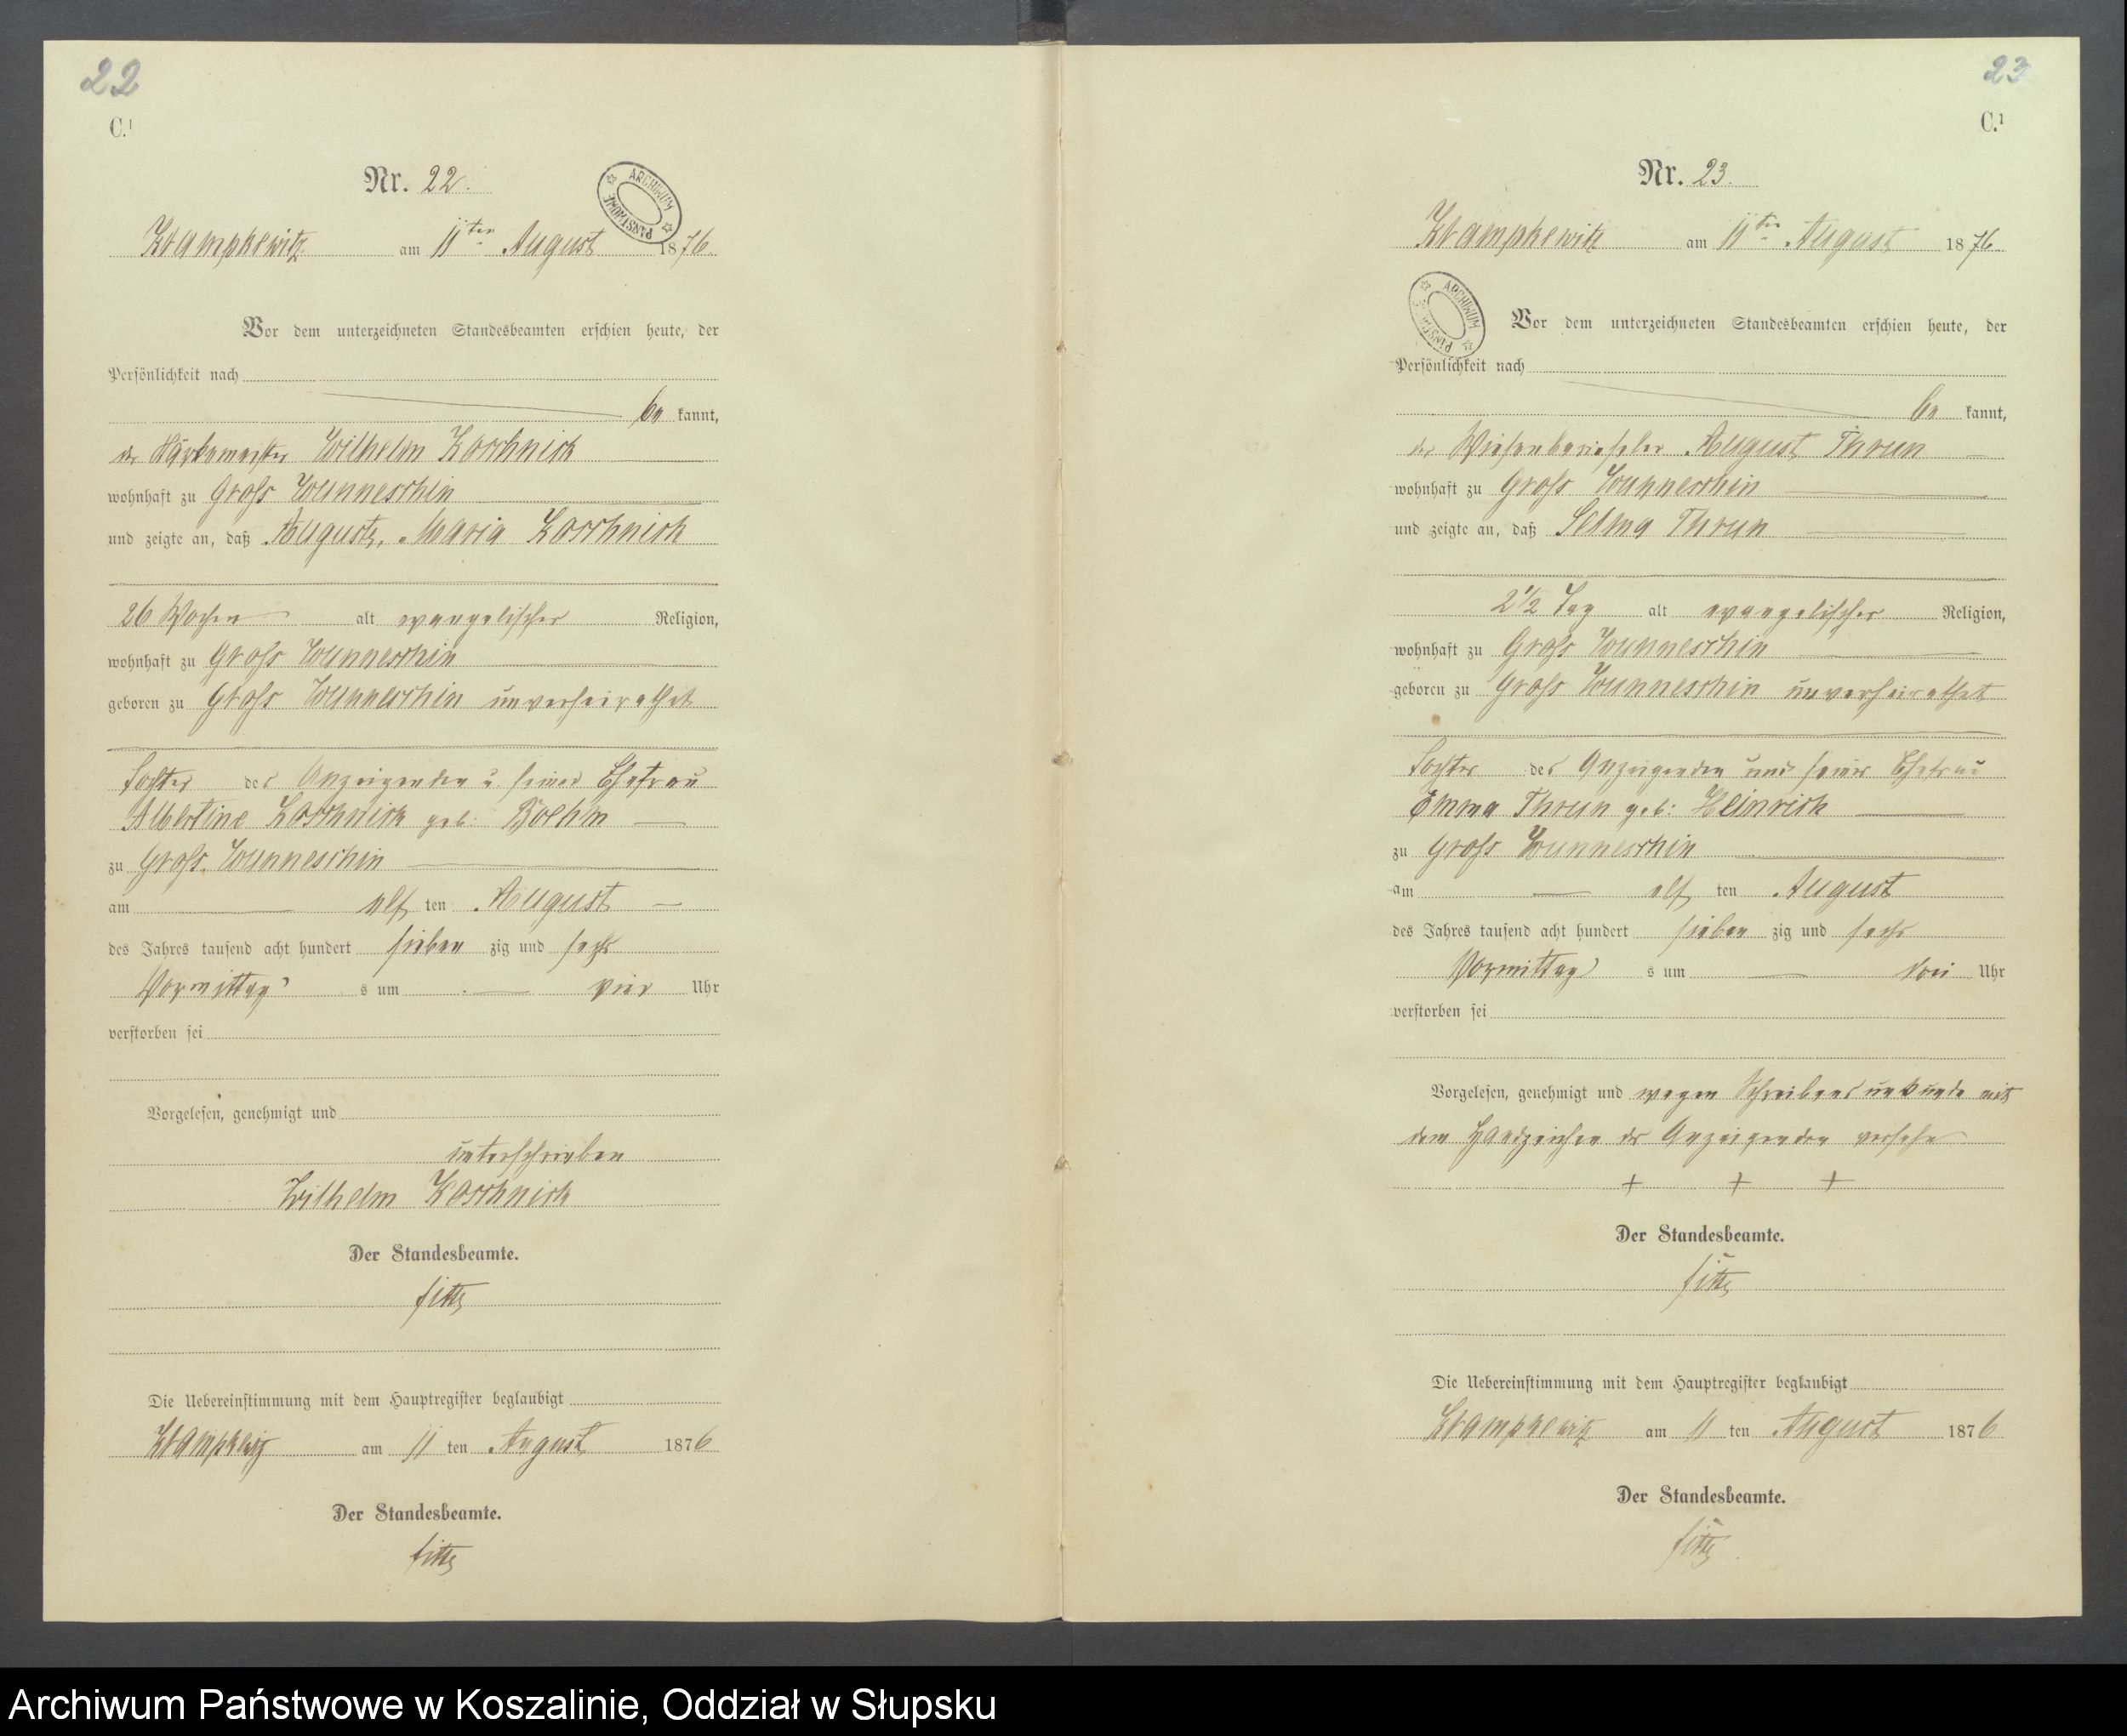 22
C.¹
Nr. 22.
ARCHIWUM PAŃSTWOWE
Krampkewitz am 11ten August 1876.
Vor dem unterzeichneten Standesbeamten erschien heute, der
Persönlichkeit nach
be kannt,
der Wilhelm Koschnick
wohnhaft zu Groß Wunneschin
und zeigte an, daß Auguste, Maria Koschnick
26 Wochen alt evangelischer Religion,
wohnhaft zu Groß Wunneschin
geboren zu Groß Wunneschin unverheirathet
Tochter des Anzeigenden u. seiner Ehefrau
Albertine Koschnick geb: Boehm
zu Groß Wunneschin
am elf ten August
des Jahres tausend acht hundert sieben zig und sechs
Vormittag s um vier Uhr
verstorben sei
Vorgelesen, genehmigt und
unterschrieben
Wilhelm Koschnick
Der Standesbeamte.
Die Uebereinstimmung mit dem Hauptregister beglaubigt
Krampkewitz am 11 ten August 1876
Der Standesbeamte.
23
C.¹
Nr. 23.
Krampkewitz am 11ten August 1876
ARCHIWUM PAŃSTWOWE
Vor dem unterzeichneten Standesbeamten erschien heute, der
Persönlichkeit nach
be kannt,
der Wiesenberiesler August Thrun
wohnhaft zu Groß Wunneschin
und zeigte an, daß Selma Thrun
2½ Tag alt evangelischer Religion,
wohnhaft zu Groß Wunneschin
geboren zu Groß Wunneschin unverheirathet
Tochter des Anzeigenden und seiner Ehefrau
Emma Thrun geb: Heinrich
zu Groß Wunneschin
am elf ten August
des Jahres tausend acht hundert sieben zig und sechs
Vormittag s um drei Uhr
verstorben sei
Vorgelesen, genehmigt und wegen Schreibensunkunde mit
dem Handzeichen des Anzeigenden versehn
+ + +
Der Standesbeamte.
Die Uebereinstimmung mit dem Hauptregister beglaubigt
Krampkewitz am 11 ten August 1876
Der Standesbeamte.
Archiwum Państwowe w Koszalinie, Oddział w Słupsku